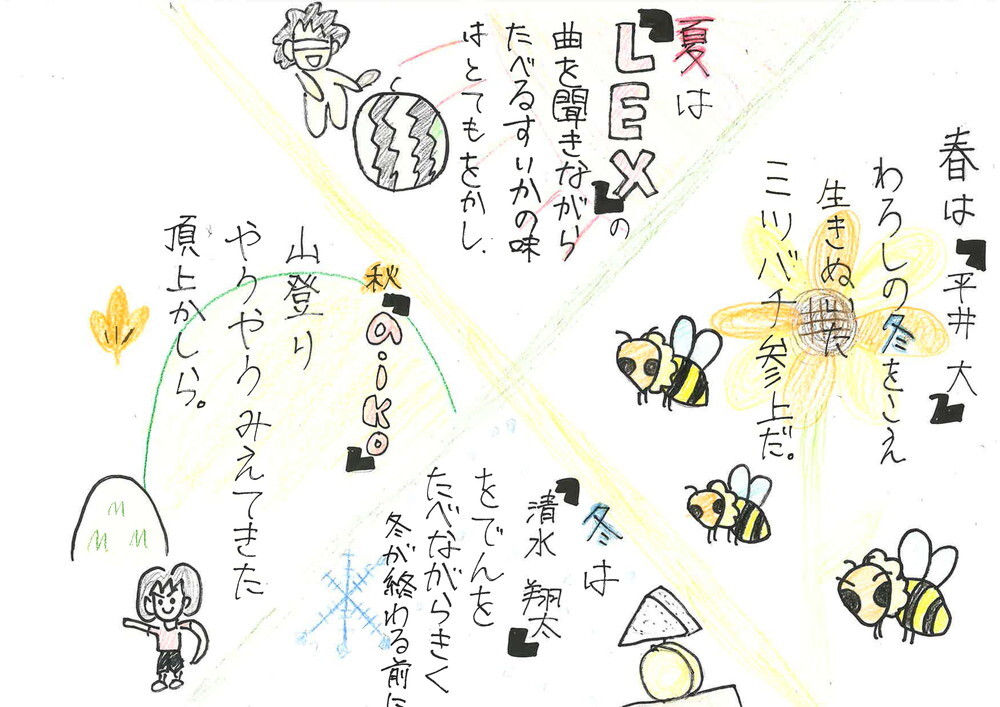 春は『平井 大』
わろしの冬をこえ
生きぬいた
ミツバチ参上だ。
夏は
『LEX』の
曲を聞きながら
たべるすいかの味
はとてもをかし、
秋
『aiko』
山登り
やうやうみえてきた
頂上かしら。
冬は
『清水 翔太』
をでんを
たべながらきく
冬が終わる前に